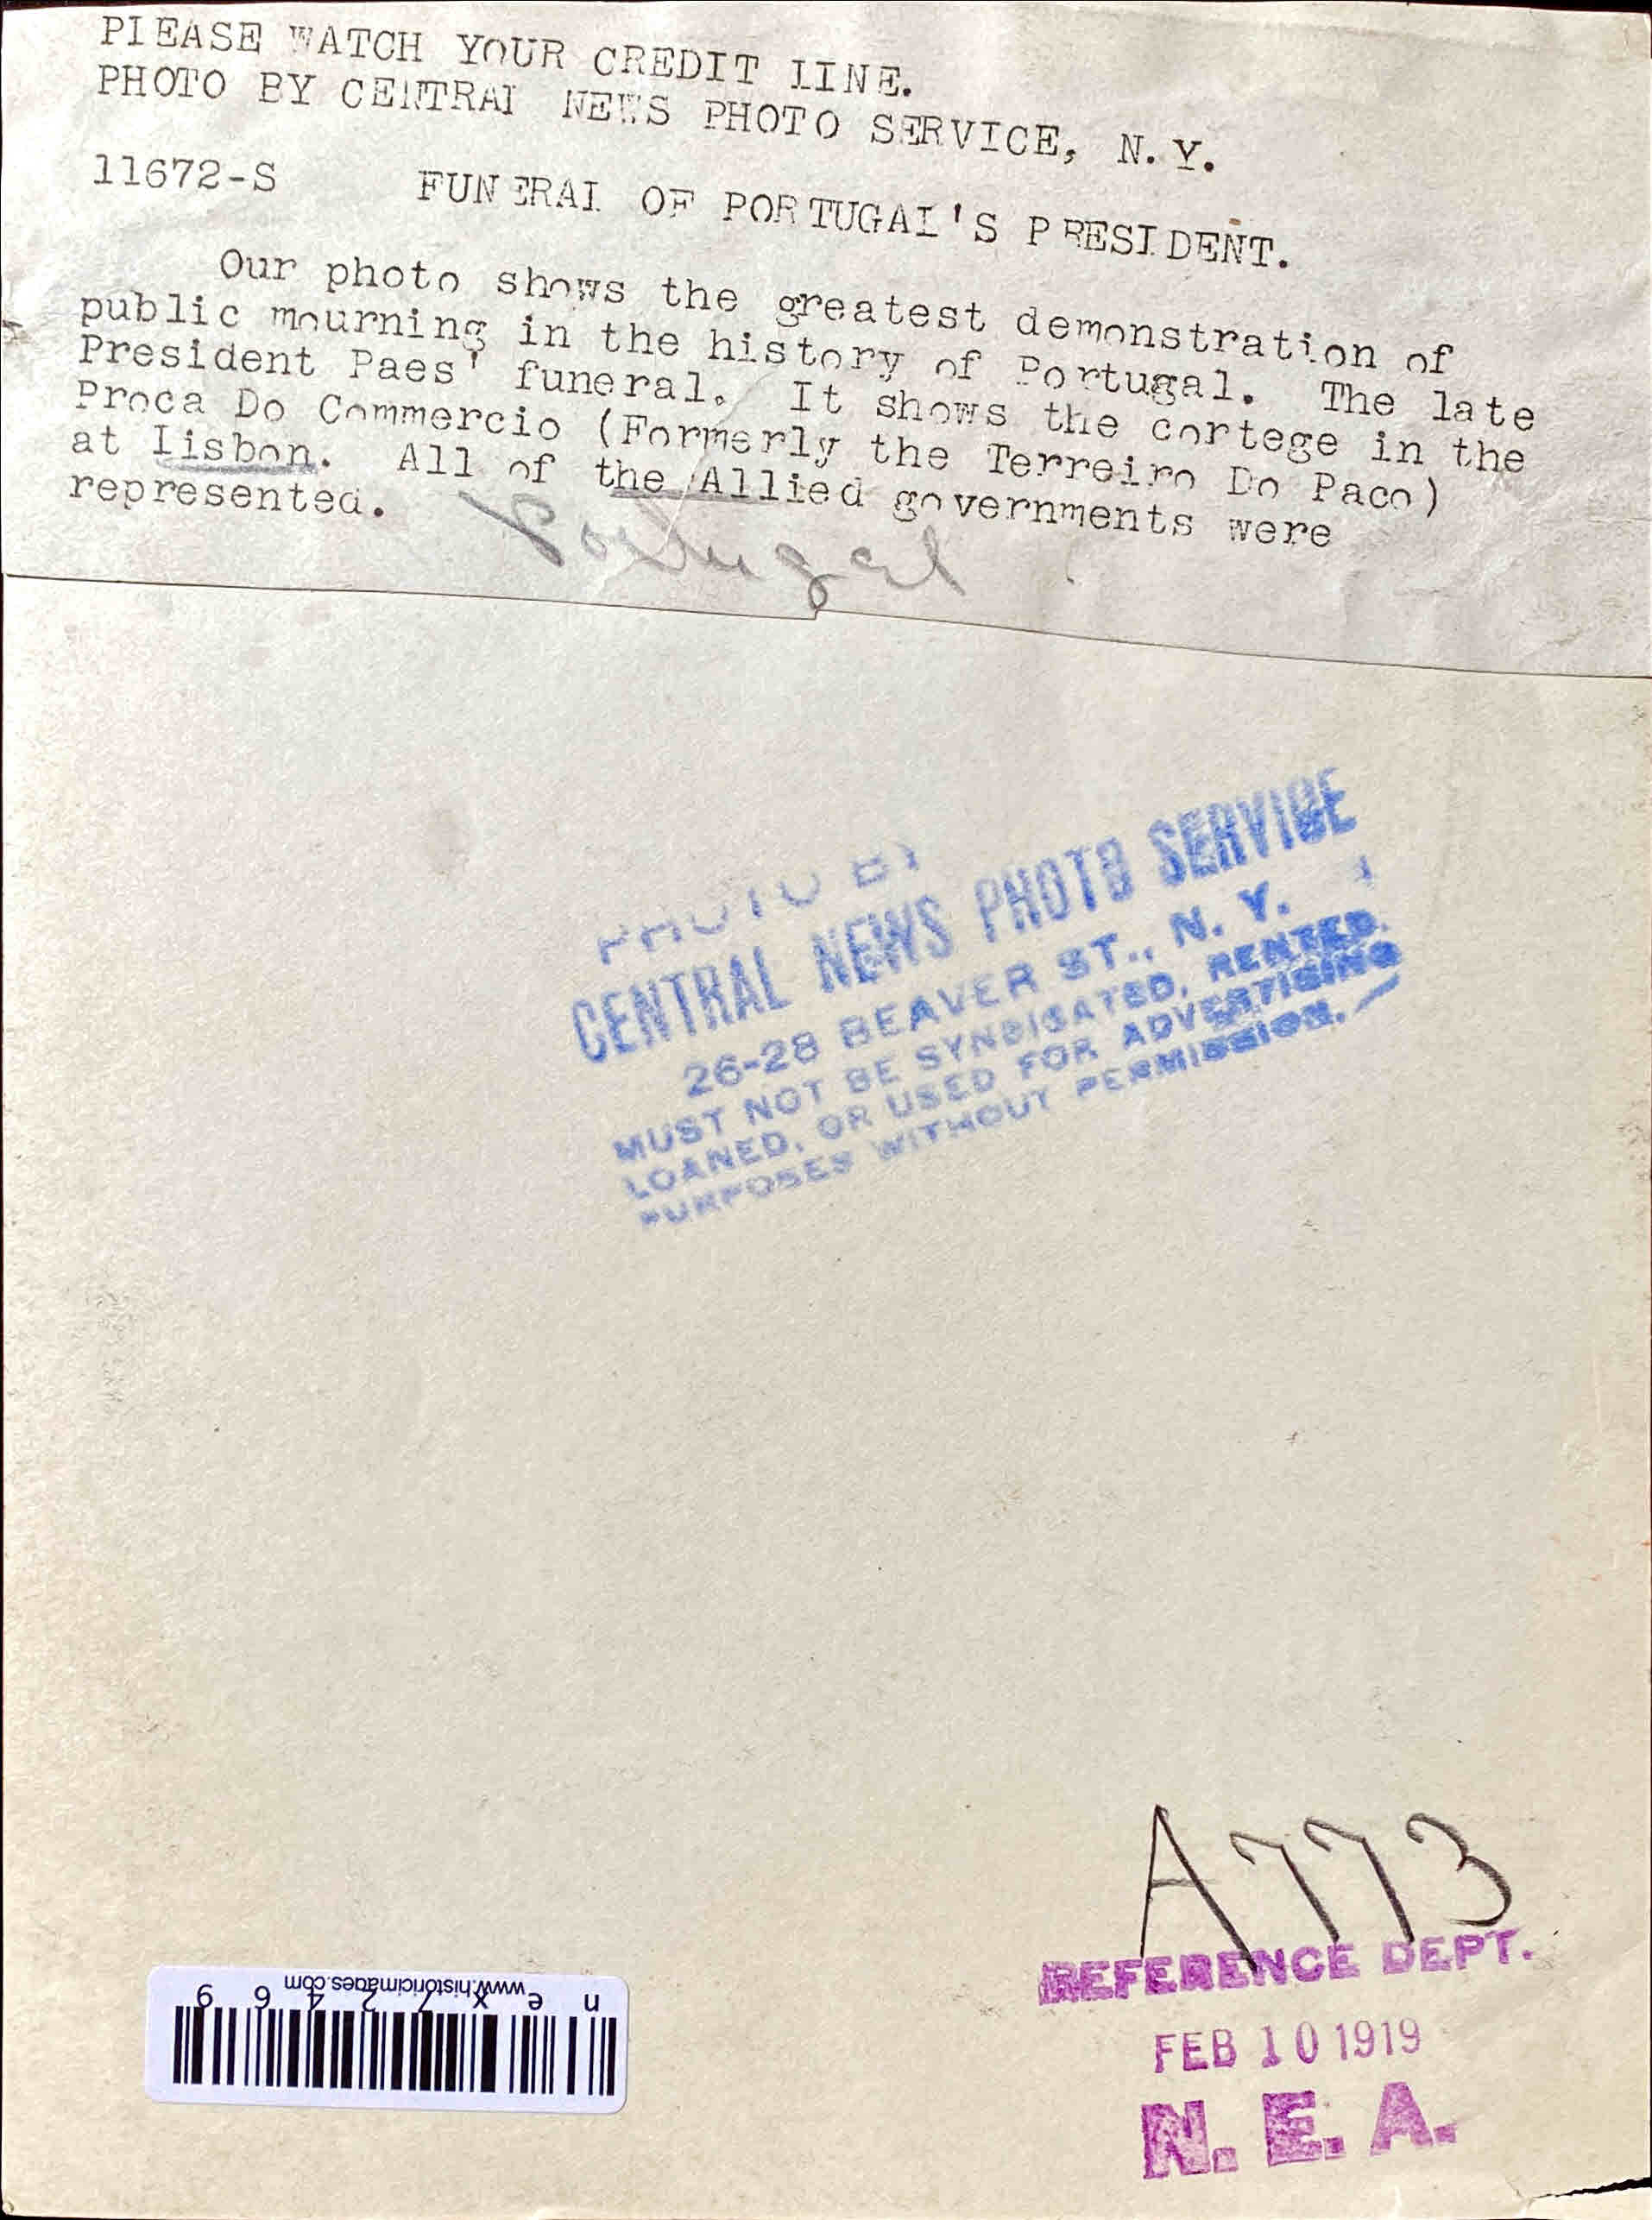 PLEASE WATCH YOUR CREDIT LINE.
PHOTO BY CENTRAL NEWS PHOTO SERVICE, N.Y.
11672-S FUNERAL OF PORTUGAL'S PRESIDENT.
Our photo shows the greatest demonstration of
public mourning in the history of Portugal. The late
President Paes' funeral. It shows the cortege in the
Proca Do Commercio (Formerly the Terreiro Do Paco)
at Lisbon. All of the Allied governments were
represented.
Portugal
PHOTO BY
CENTRAL NEWS PHOTO SERVICE
26-28 BEAVER ST., N. Y.
MUST NOT BE SYNDICATED, RENTED,
LOANED, OR USED FOR ADVERTISING
PURPOSES WITHOUT PERMISSION.
A773
REFERENCE DEPT.
FEB 10 1919
N. E. A.
www.historicimages.com
nex72469